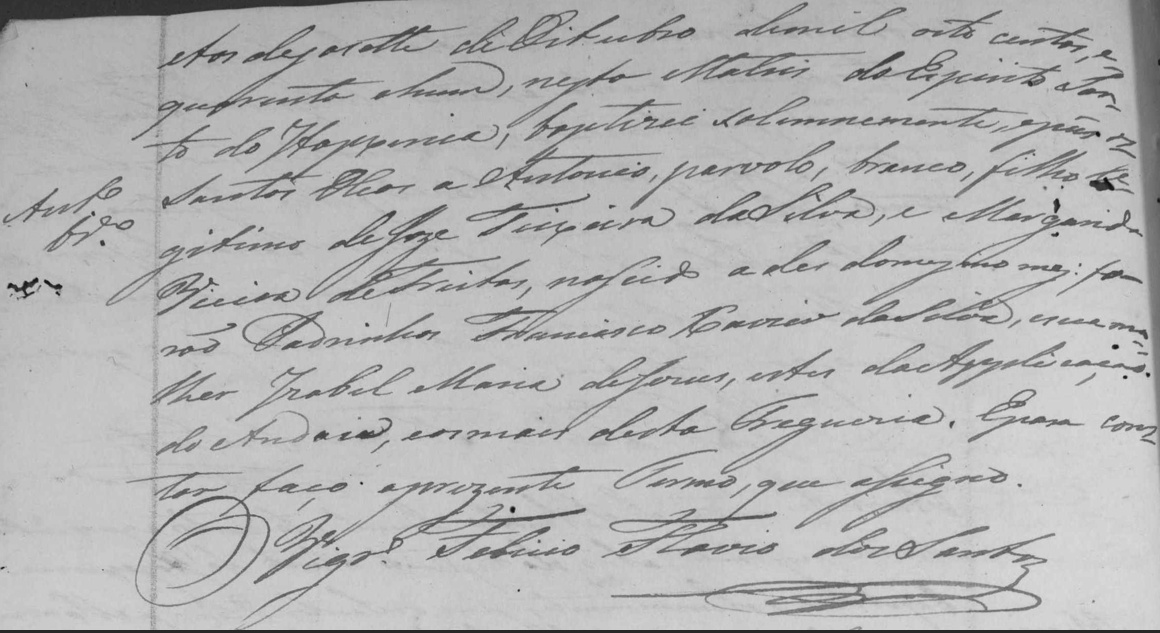 Aos dezasette de Oitubro de mil oito centos, e
quarenta e hum, nesta Matris do Espirito San-
to do Itapperica, baptizei solemnemente, e puz os
Santos Oleos a Antonio, parvolo, branco, filho le-
Antº
gitimo de Joze Teixeira da Silva, e Margarida
Vieira de Freitas, nascido a des do mesmo mez: fo-
rão Padrinhos Francisco Xavier da Silva, e sua mu-
lher Izabel Maria de Jesus, estes da Applicação
do Andaia, e os mais desta Freguezia. E para cons-
tar, faço o prezente Termo, que assigno.
O Vigrº. Felicio Flavio dos Santos